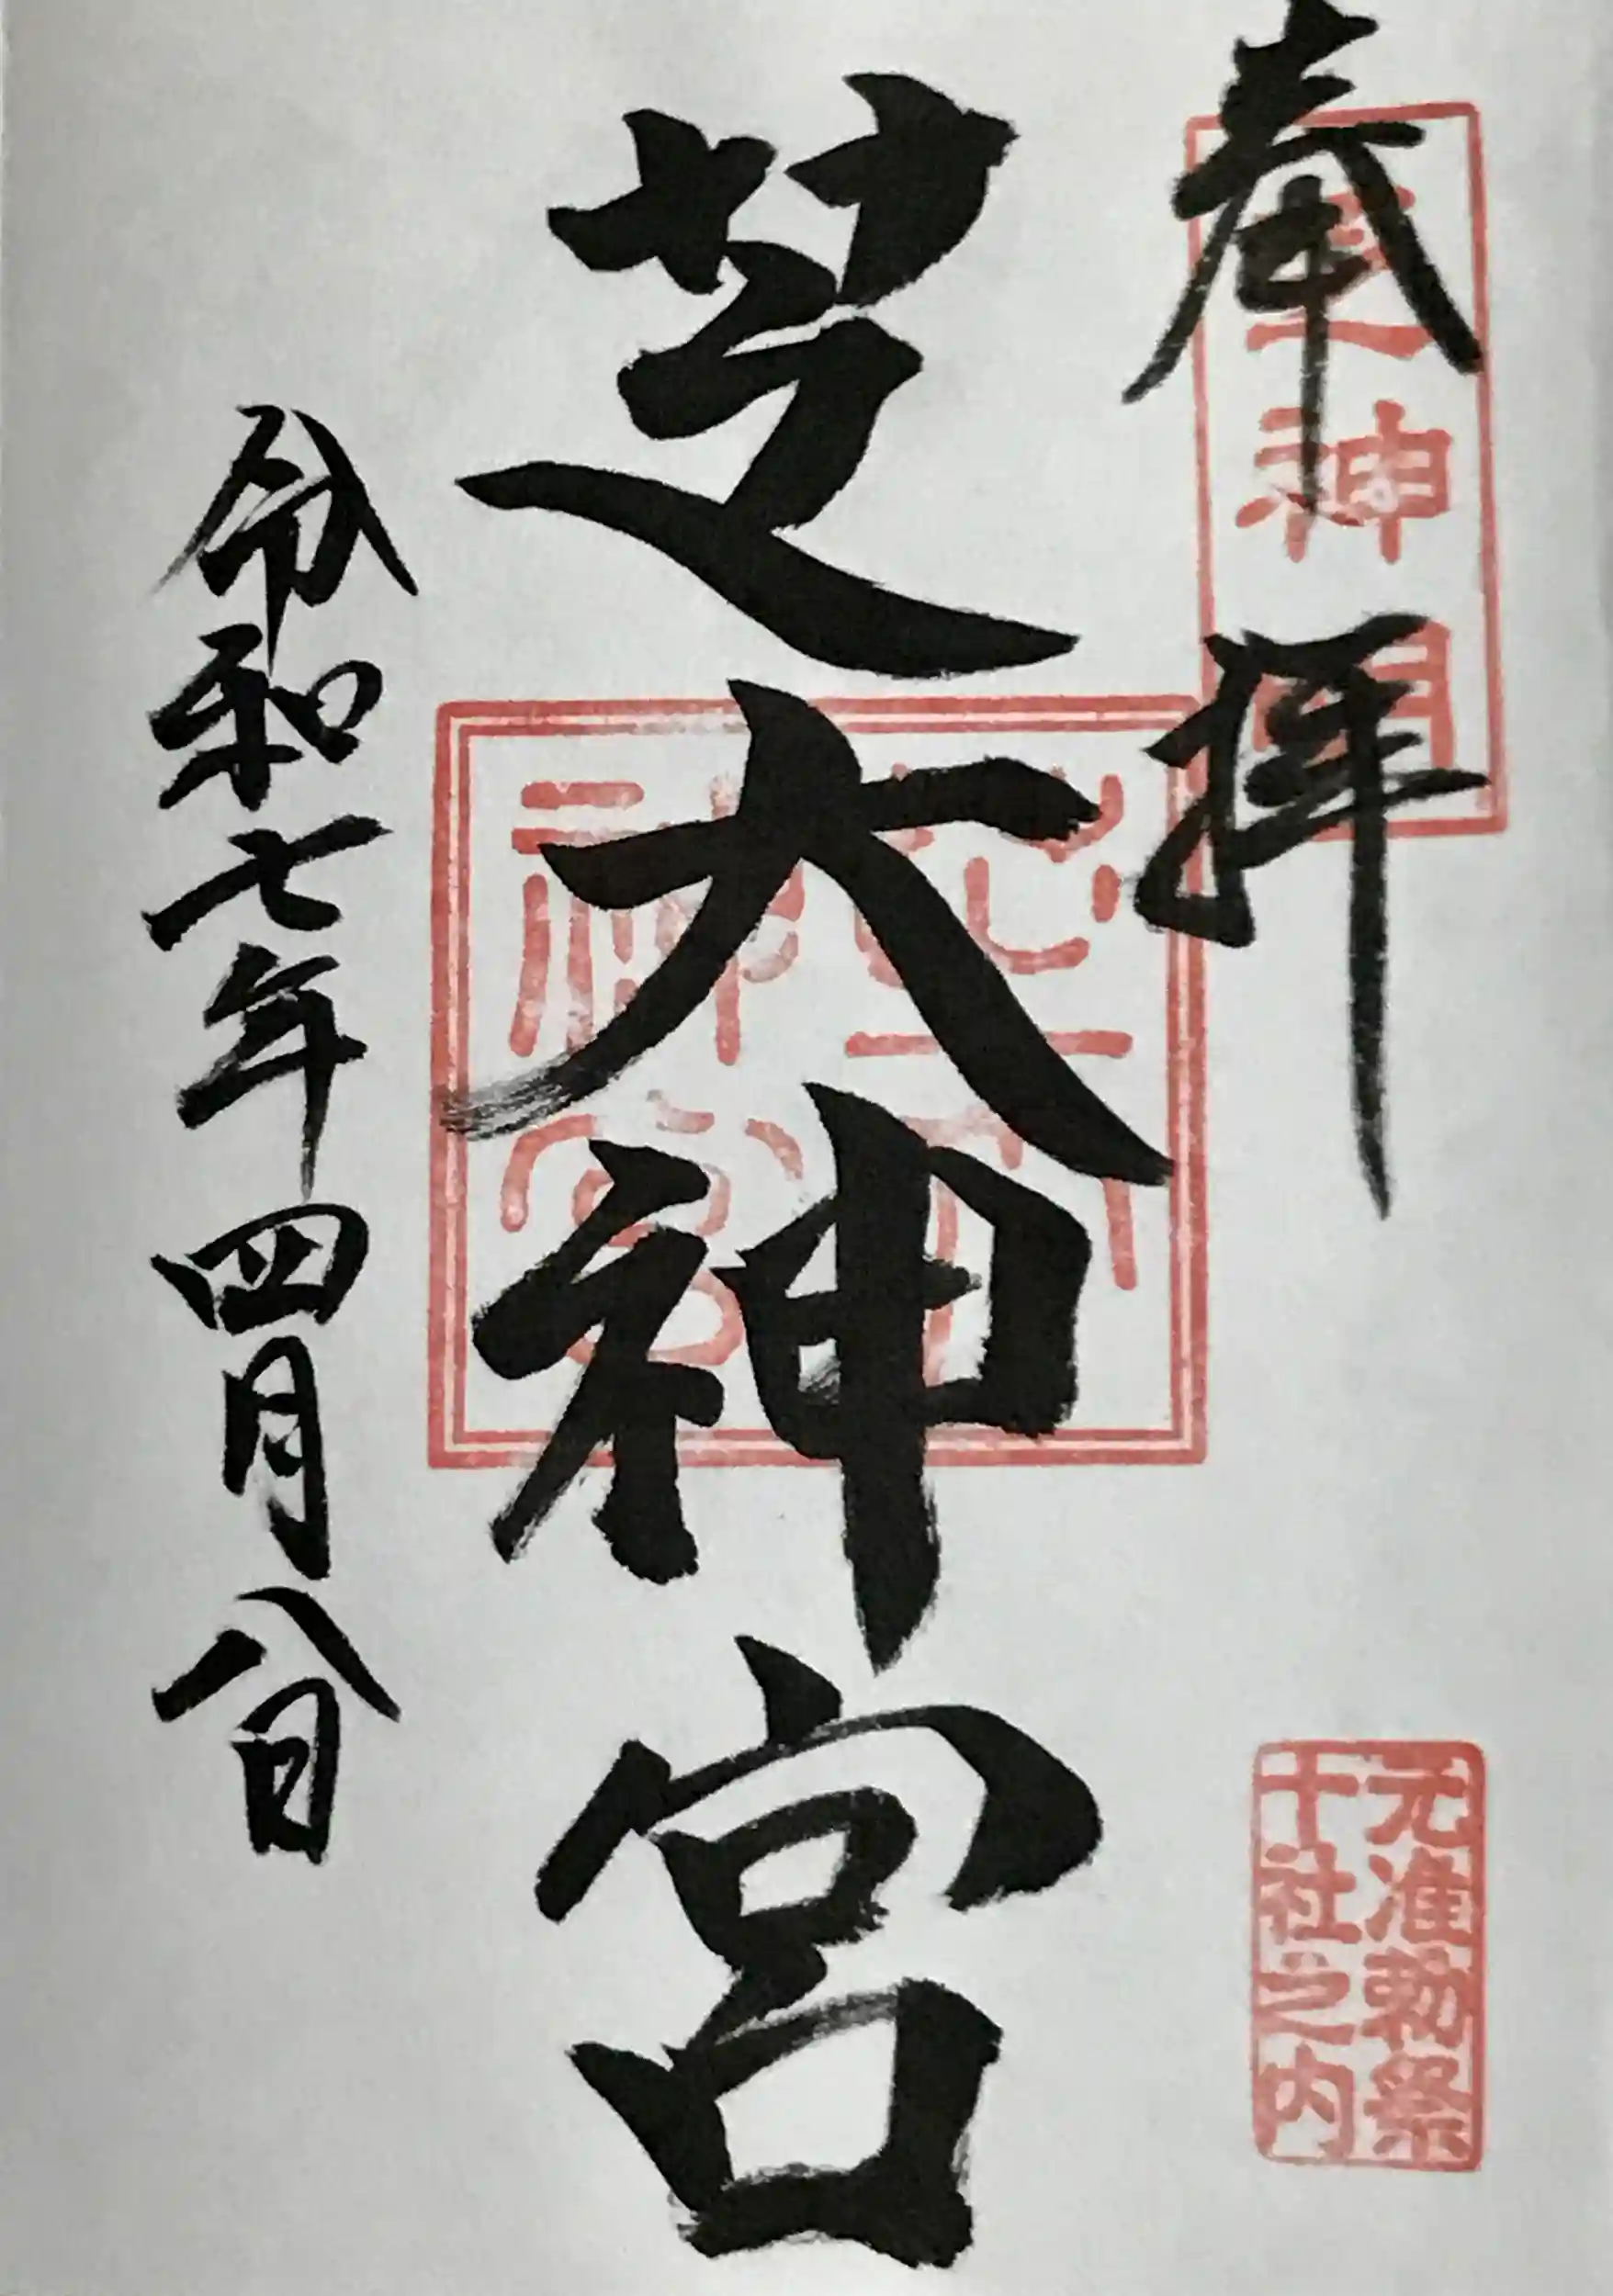 奉拝
神明
芝大神宮
芝大神宮
元准勅祭
十社之内
令和七年四月八日